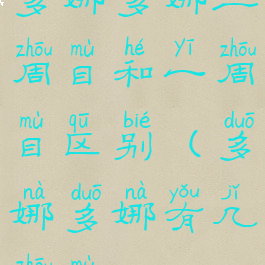 多娜多娜一
zhōu mù hé yī zhōu
周目和一周
mù qū bié duō
目区别(多
nà duō nà yǒu jǐ
娜多娜有几
zhōu mù